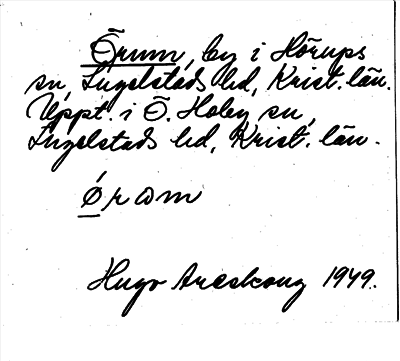 Örum, by i Hörups
sn, Ingelstads hd, Krist. län.
Uppt. i Ö. Hoby sn,
Ingelstads hd, Krist. län.
Øram
Hugo Areskoug 1949.